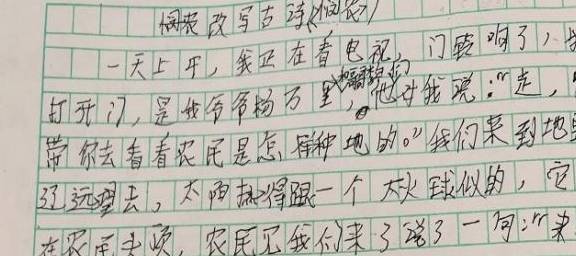 悯农改写古诗《悯农》
一天上午,我正在看电视,门铃响了,我
打开门,是我爷爷杨万里,他对我说:“走,
带你去看看农民是怎样种地的。”我们来到地里
远望去,太阳热得跟一个大火球似的,它
在农民头顶,农民见我们来了说了一句:“来